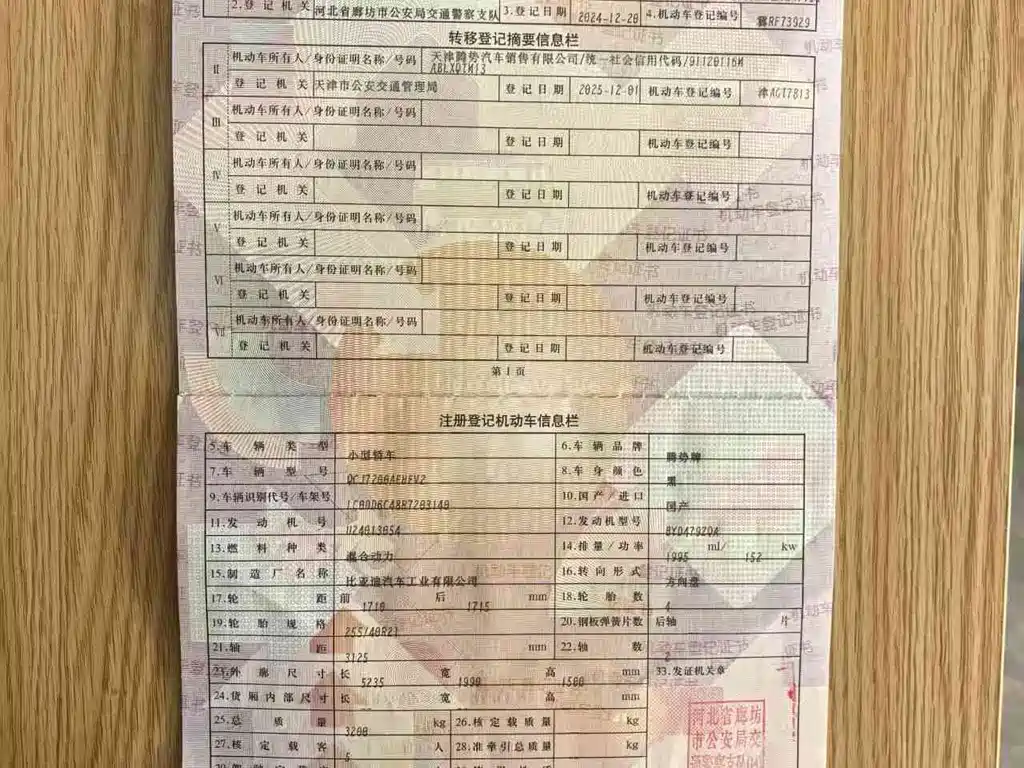 2.登记机关 河北省廊坊市公安局交通警察支队 3.登记日期 2024-12-20 4.机动车登记编号 冀RF73929
转移登记摘要信息栏
II 机动车所有人/身份证明名称/号码 天津腾势汽车销售有限公司/统一社会信用代码/91120116M
ABLXQ7M13
登记机关 天津市公安交通管理局 登记日期 2025-12-01 机动车登记编号 津AGT7813
III 机动车所有人/身份证明名称/号码
登记机关 登记日期 机动车登记编号
IV 机动车所有人/身份证明名称/号码
登记机关 登记日期 机动车登记编号
V 机动车所有人/身份证明名称/号码
登记机关 登记日期 机动车登记编号
VI 机动车所有人/身份证明名称/号码
登记机关 登记日期 机动车登记编号
VII 机动车所有人/身份证明名称/号码
登记机关 登记日期 机动车登记编号
第1页
注册登记机动车信息栏
5.车辆类型 小型轿车 6.车辆品牌 腾势牌
7.车辆型号 8.车身颜色 黑
9.车辆识别代号/车架号 10.国产/进口 国产
11.发动机号 12.发动机型号 BYD479ZQA
13.燃料种类 混合动力 14.排量/功率 1995 ml/ 152 kw
15.制造厂名称 比亚迪汽车工业有限公司 16.转向形式 方向盘
17.轮距 前 1710 后 1715 mm 18.轮胎数 4
19.轮胎规格 255/40R21 20.钢板弹簧片数 后轴 片
21.轴距 3125 mm 22.轴数 2
23.外廓尺寸 长 5235 宽 1990 高 1500 mm 33.发证机关章
24.货厢内部尺寸 长 宽 高 mm
25.总质量 3200 kg 26.核定载质量 kg
27.核定载客 5 人 28.准牵引总质量 kg
河北省廊坊
市公安局交